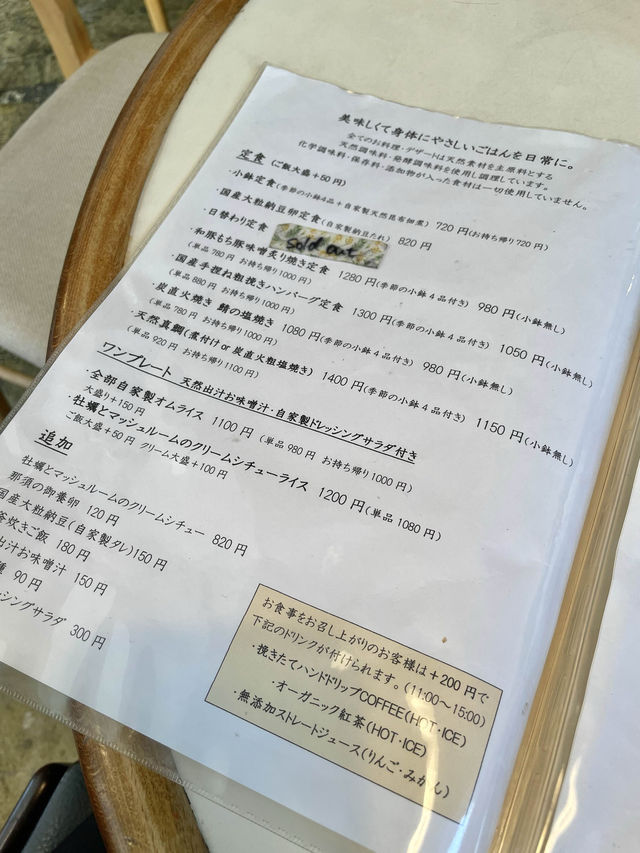 美味しくて身体にやさしいごはんを日常に。
全てのお料理・デザートは天然素材を主原料とする
天然調味料・発酵調味料を使用し調理しています。
化学調味料・保存料・添加物が入った食材は一切使用していません。
定食 (ご飯大盛+50円)
・小鉢定食(季節の小鉢4品+自家製天然昆布佃煮) 720円(お持ち帰り720円)
・国産大粒納豆卵定食(自家製納豆たれ) 820円
・日替わり定食 sold out
・和豚もち豚味噌炙り焼き定食 1280円(季節の小鉢4品付き) 980円(小鉢無し)
(単品780円 お持ち帰り1000円)
・国産手捏ね粗挽きハンバーグ定食 1300円(季節の小鉢4品付き) 1050円(小鉢無し)
(単品880円 お持ち帰り1000円)
・炭直火焼き 鯖の塩焼き 1080円(季節の小鉢4品付き) 980円(小鉢無し)
(単品780円 お持ち帰り1000円)
・天然真鯛(煮付けor炭直火粗塩焼き) 1400円(季節の小鉢4品付き) 1150円(小鉢無し)
(単品920円 お持ち帰り1100円)
ワンプレート 天然出汁お味噌汁・自家製ドレッシングサラダ付き
・全部自家製オムライス 1100円 (単品980円 お持ち帰り1000円)
大盛り+150円
・牡蠣とマッシュルームのクリームシチューライス 1200円(単品1080円)
ご飯大盛+50円 クリーム大盛+100円
追加
牡蠣とマッシュルームのクリームシチュー 820円
那須の御養卵 120円
国産大粒納豆(自家製タレ)150円
釜炊きご飯 180円
出汁お味噌汁 150円
90円
ッシングサラダ 300円
お食事をお召し上がりのお客様は+200円で
下記のドリンクが付けられます。(11:00~15:00)
・挽きたてハンドドリップCOFFEE(HOT・ICE)
・オーガニック紅茶(HOT・ICE)
・無添加ストレートジュース(りんご・みかん)